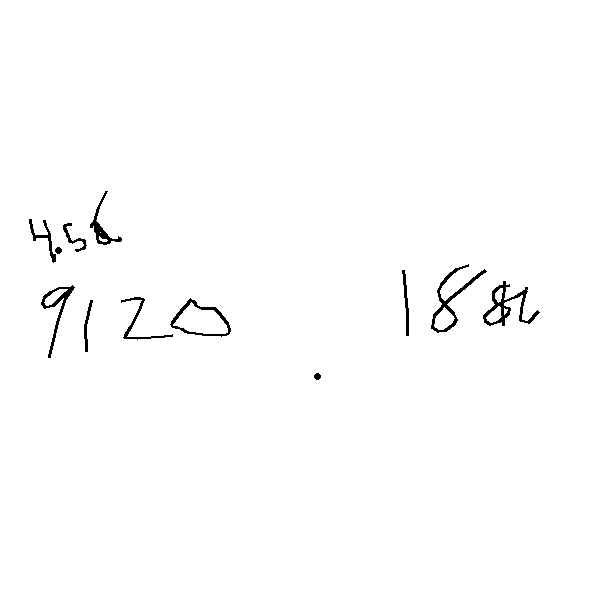 4.56
9120 . 18